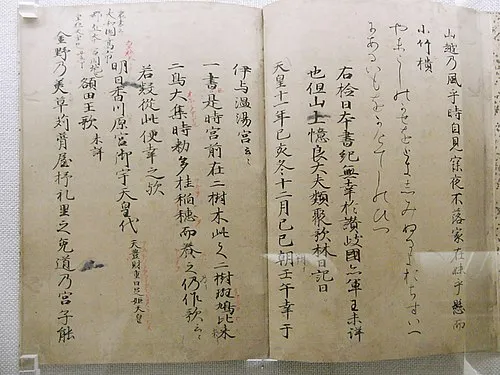 山越乃風乎時自見寐夜不落家在妹乎懸而
小竹櫃
やまこしのかせをときしみぬるよおちすいへ
にあるいもをかけてしのひつ
右檢日本書紀無幸於讃岐國亦軍王未詳
也但山上憶良大夫類聚歌林曰記曰
天皇十一年己亥冬十二月己巳朔壬午幸于
伊与温湯宮云々
一書是時宮前在二樹木此之二樹斑鳩比米
二鳥大集時勅多挂稲穂而養之仍作歌云々
若疑從此便幸之歟
明日香川原宮御宇天皇代 天豊財重日足姫天皇
額田王歌 未詳
金野乃美草苅葺屋杼礼里之兔道乃宮子能